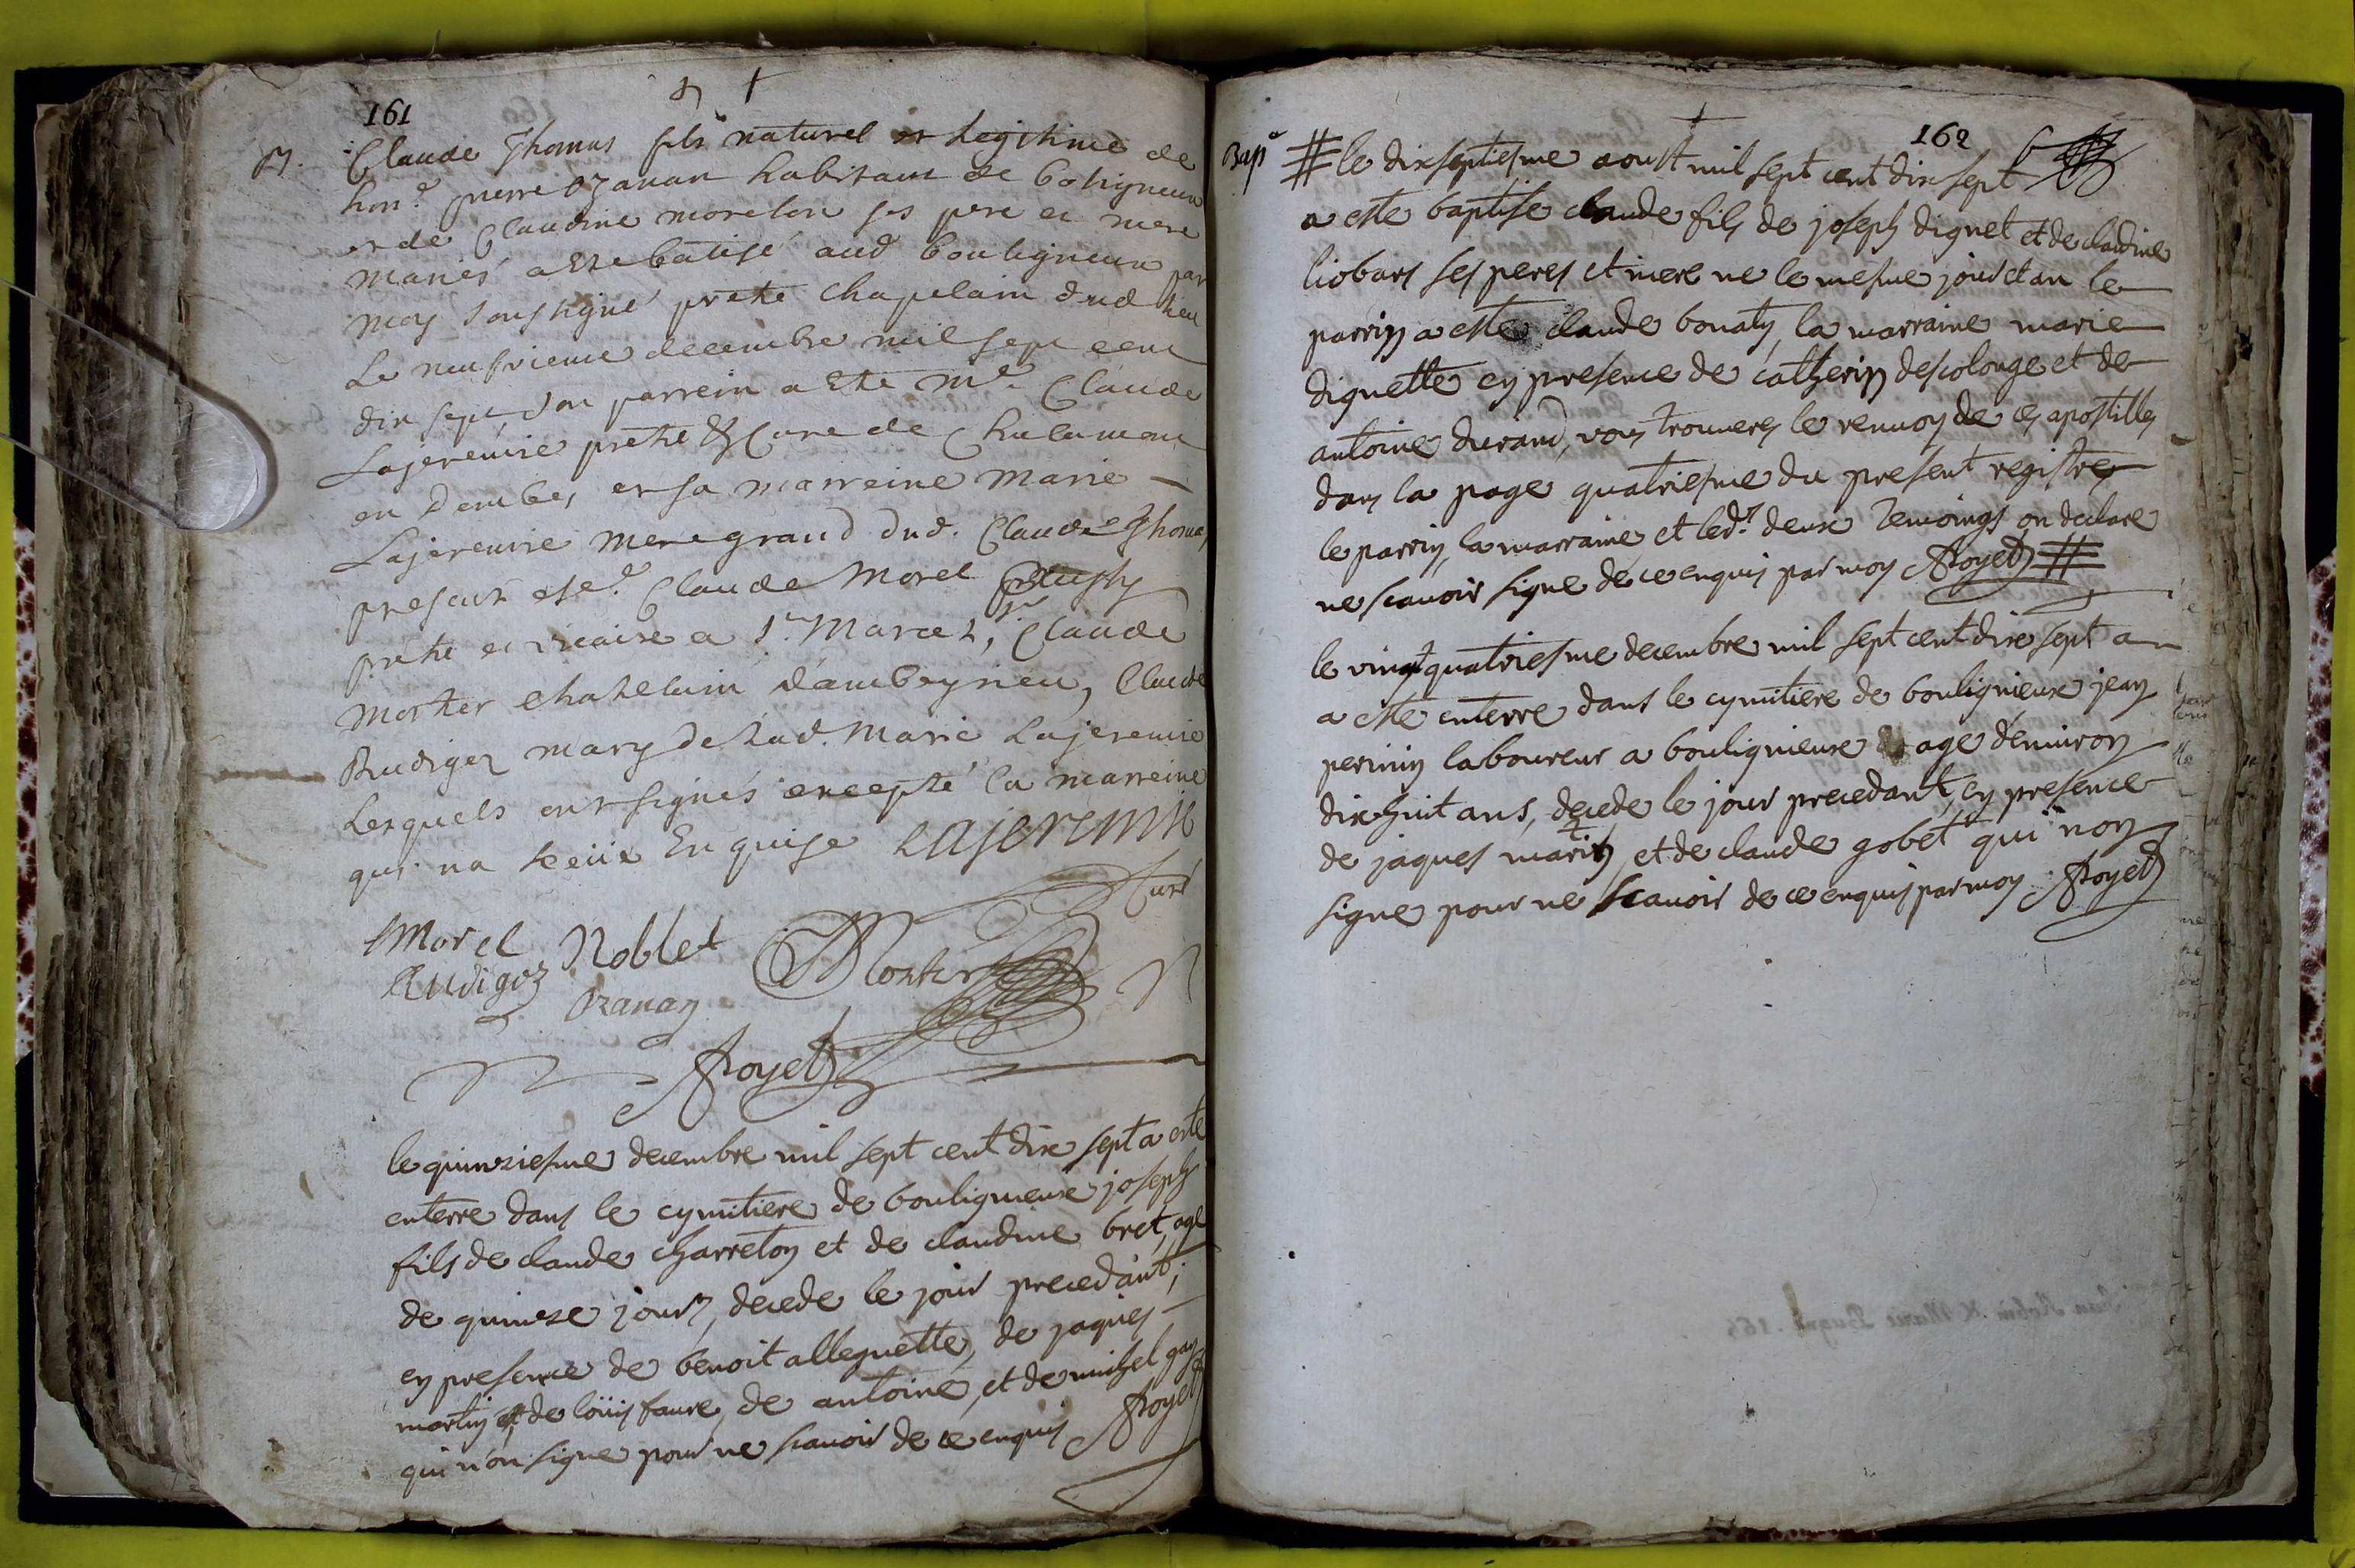 161
B. Claude Thomas fils naturel et legitime de
hon.e pierre ozanan habitant de boligneux
et de Claudine morelon ses pere et mere
mariés a este batisé aud bouligneux par
moy soussigné pretre chapelain dud lieu
Le neufvieme decembre mil sept cent
dix sept, son parrein a este m.e Claude
Lajeremie pretre et Curé de Chalamont
en Dombes, et sa marreine Marie
Lajeremie mere grand dud. Claude Thomas
present ese.e Claude Morel
pretre et vicaire a s.t Marcel, Claude
Morter chatelain d'ambeyrieu, Claude
Rudigoz mary de lad. Marie Lajeremie
Lesquels ont signés excepté la marreine
qui na sceüe Enquise Lajeremie
Curé
Morel Noblet Morter
Rudigoz Ozanan
Royet
le quinziesme decembre mil sept cent dix sept a este
enterre dans le cymitiere de bouligneux joseph
fils de claude charreton et de claudine bret, age
de quinze jours, decede le jour precedant,
en presence de benoit alleguette, de jaques
martin et de loüis faure, de antoine, et de michel gay
qui n'on signe pour ne scavoir de ce enquis Royet
162
Bap.e # le dix septiesme aoust mil sept cent dix sept
a este baptise claude fils de joseph diguet et de claudine
liobars ses peres et mere ne le mesme jour et an le
parrin a este claude bonaty, la marraine marie
diguette en presence de catherin descolonge et de
antoine durand, vous trouveres le renvoy de ces apostilles
dans la page quatriesme du present registre
le parrin, la marraine et led.s deux temoings on declare
ne scavoir signe de ce enquis par moy Royet #
le vingt quatriesme decembre mil sept cent dix sept a
a este enterre dans le cymitiere de bouligneux jean
perinin laboureur a bouligneux age d'environ
dix huit ans, decede le jour precedant, en presence
de jaques martin, et de claude gobet qui non
signe pour ne scavoir de ce enquis par moy Royet